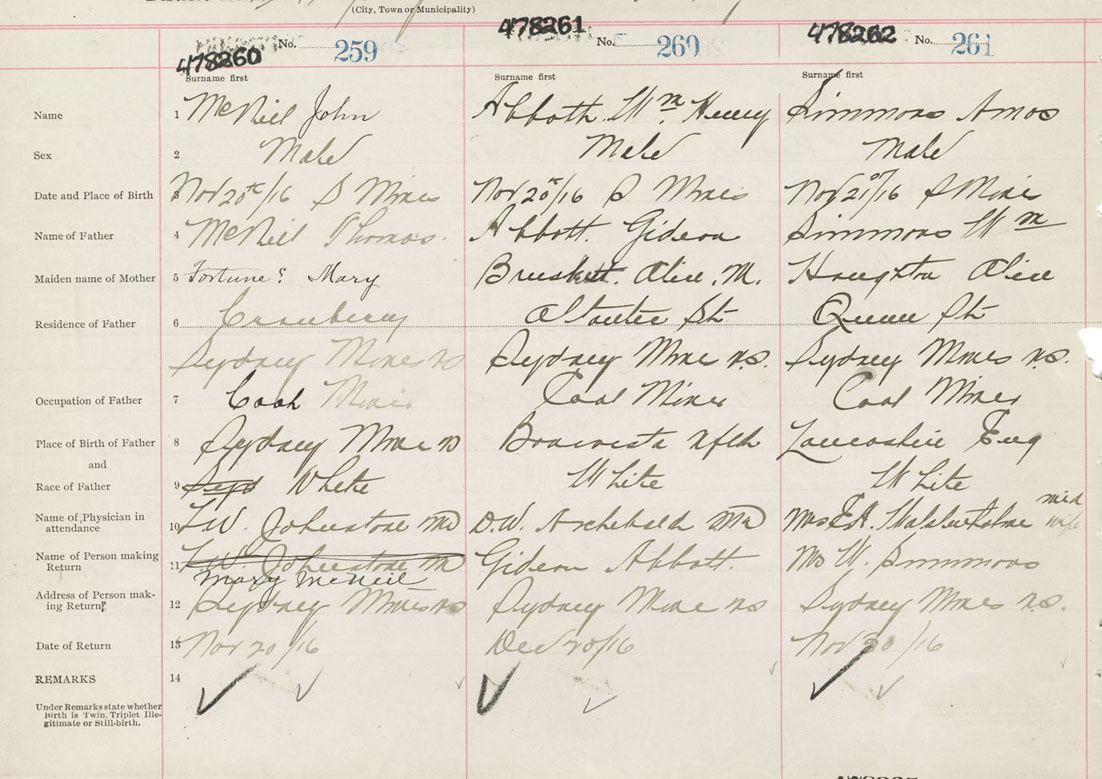 (City, Town or Municipality)
478260 No. 259 478261 No. 260 478262 No. 261
Surname first Surname first Surname first
Name 1 McNiell John Abbott. Wm. Henry Simmons Amos
Sex 2 Male Male Male
Date and Place of Birth 3 Nov 20th/16 S Mines Nov 20th/16 S. Mines Nov 21st/16 S Mines
Name of Father 4 McNiell Thomas. Abbott. Gideon Simmons Wm
Maiden name of Mother 5 Fortune? Mary Alice. M. Houghton Alice
Residence of Father 6 Cranberry St Queen St
Sydney Mines NS Sydney Mines N.S. Sydney Mines N.S.
Occupation of Father 7 Miner Coal Miner Coal Miner
Place of Birth of Father 8 Sydney Mines NS Bonavista Nfld Lancashire Eng
and
Race of Father 9 White White White
Name of Physician in
attendance 10 L.W. Johnstone MD D.W. Archibald MD Mrs E.A. Walstenholme mid wife
Name of Person making
Return 11 L.W. Johnstone MD Gideon Abbott. Mrs W. Simmons
Mary McNeil
Address of Person mak-
ing Return 12 Sydney Mines NS Sydney Mines NS Sydney Mines N.S.
Date of Return 13 Nov 20/16 Dec 20/16 Nov 30/16
REMARKS 14
Under Remarks state whether
Birth is Twin. Triplet Ille-
gitimate or Still-birth.